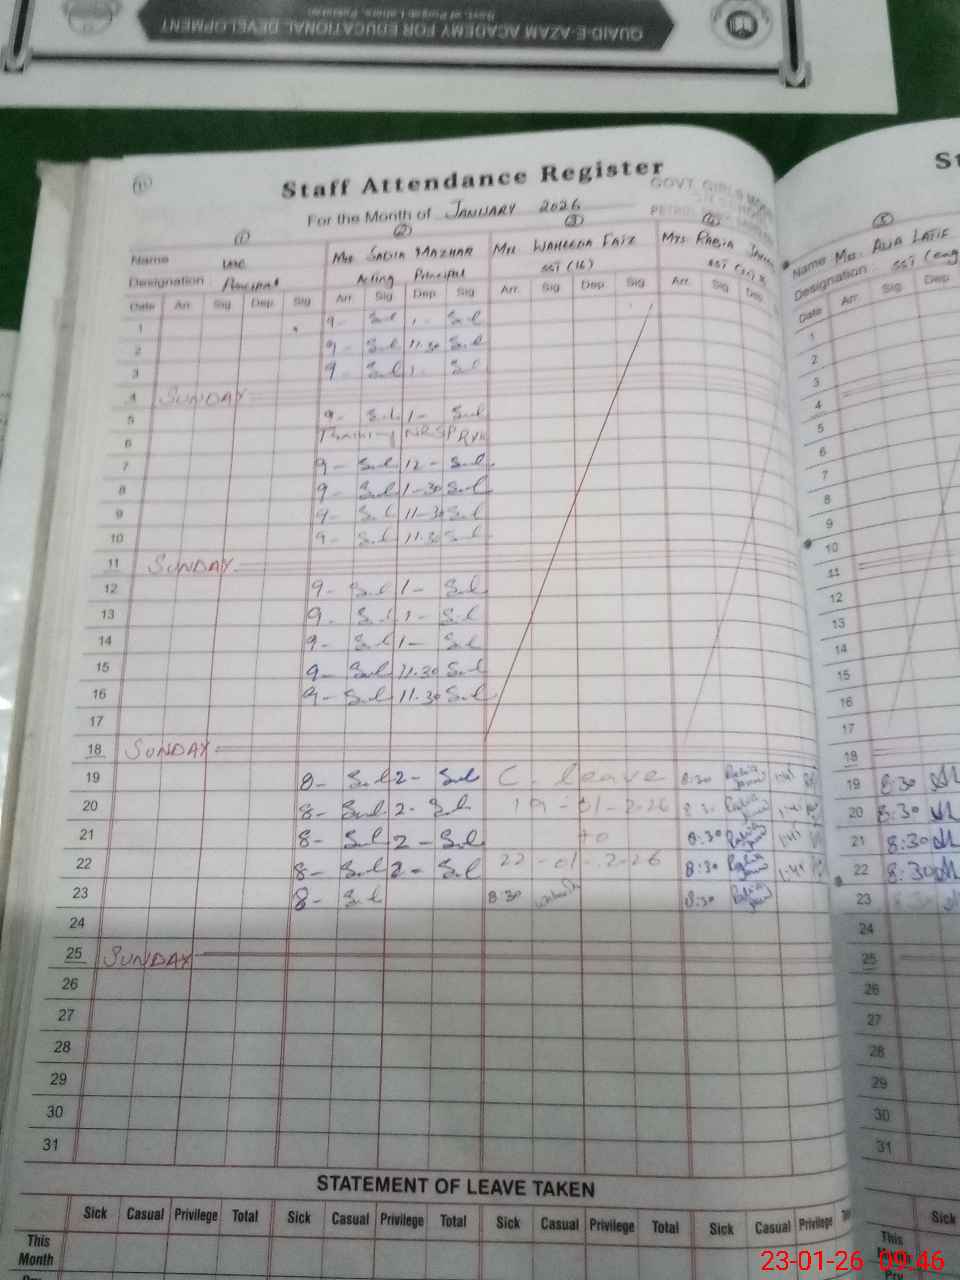 QUAID-E-AZAM ACADEMY FOR EDUCATIONAL DEVELOPMENT
Govt. of Punjab Lahore, Pakistan
Staff Attendance Register
GOVT. GIRLS
For the Month of JANUARY 2026
(1) (2) (3) (4) (5)
Name
Designation Principal
Mrs SADIA MAZHAR
Acting Principal
Mrs WAHEEDA FAIZ
SST (16)
Mrs RABIA
SST
Name Mrs. ALIA LATIF
Designation SST (eng
Date Arr. Sig Dep. Sig Arr. Sig Dep Sig Arr. Sig Dep. Sig Arr. Sig Dep
Date Arr Sig Dep
1 9- S.l 1- S.l
2 9- S.l 11.30 S.l
3 9- S.l 1- S.l
4 SUNDAY
5 9- S.l 1- S.l
6 Training NRSP RYK
7 9- S.l 12- S.l
8 9- S.l 1-30 S.l
9 9- S.l 11-30 S.l
10 9- S.l 11.30 S.l
11 SUNDAY
12 9- S.l 1- S.l
13 9- S.l 1- S.l
14 9- S.l 1- S.l
15 9- S.l 11.30 S.l
16 9- S.l 11.30 S.l
17
18 SUNDAY
19 8- S.l 2- S.l C. leave 8:30 Rabia 19 8:30
20 8- S.l 2- S.l 19-01-2026 8:30 Rabia 20 8:30
21 8- S.l 2- S.l to 8:30 Rabia 21 8:30
22 8- S.l 2- S.l 22-01-2026 8:30 Rabia 22 8:30
23 8- S.l 8:30 8:30 Rabia 23 8:30
24
25 SUNDAY
26
27
28
29
30
31
STATEMENT OF LEAVE TAKEN
Sick Casual Privilege Total Sick Casual Privilege Total Sick Casual Privilege Total Sick Casual Privilege
This Month
Sick
This
23-01-26 09:46